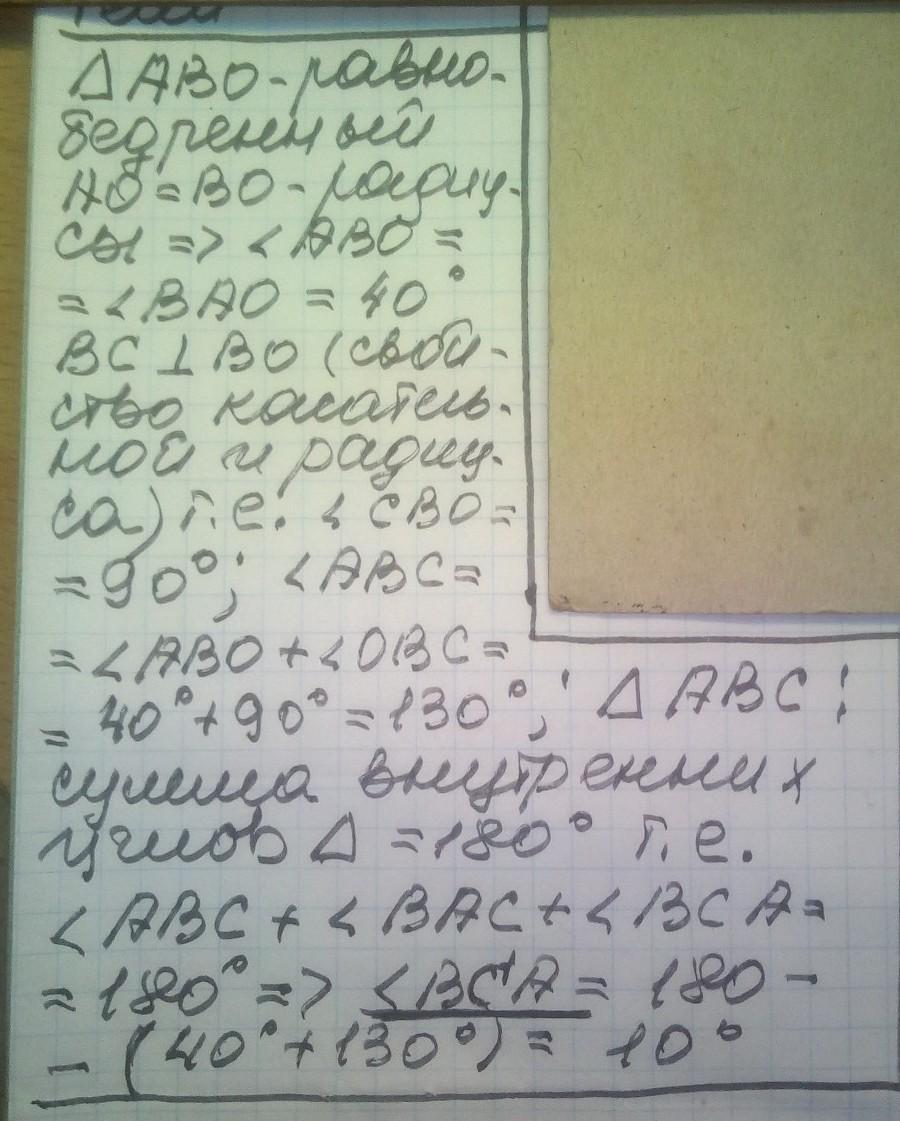 △ ABO - равно-
бедренный
AO = BO - радиу-
сы => < ABO =
= < BAO = 40°
BC ⊥ BO (свой-
ство касатель-
ной и радиу-
са) т.е. < CBO =
= 90°; < ABC =
= < ABO + < OBC =
= 40° + 90° = 130°; △ ABC:
сумма внутренних
углов △ = 180° т.е.
< ABC + < BAC + < BCA =
= 180° => < BCA = 180 -
- (40° + 130°) = 10°